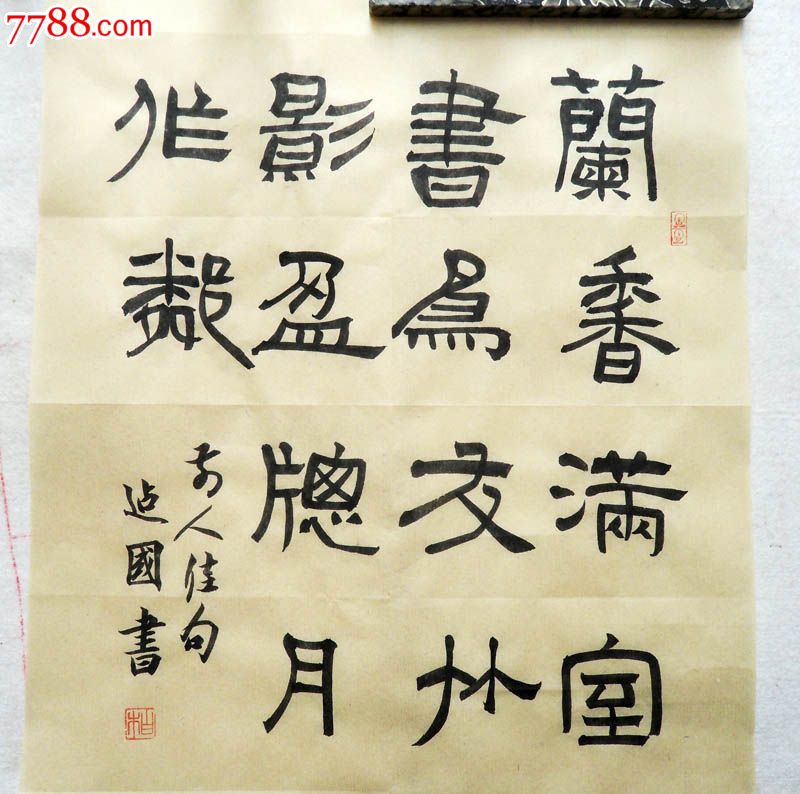 7788.com
蘭香滿室
書為友竹
影盈牕月
作鄰
前人佳句
迠國書